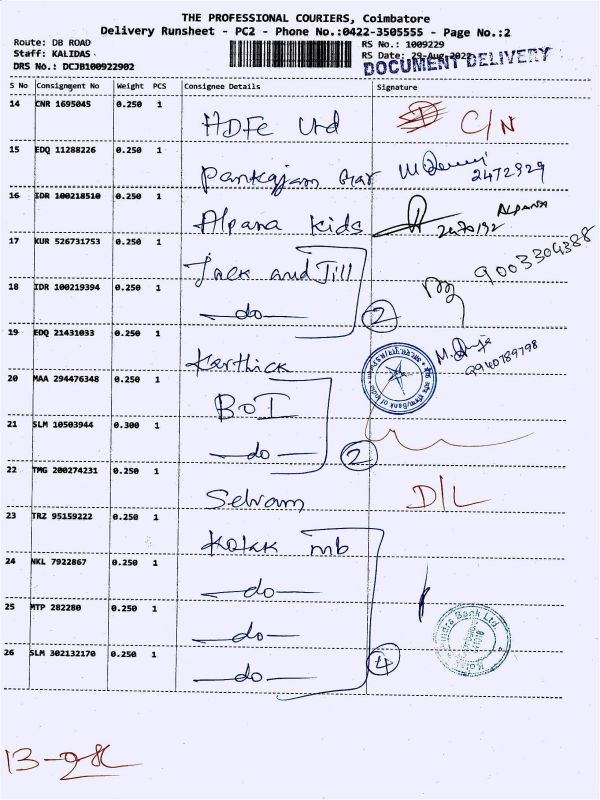 THE PROFESSIONAL COURIERS, Coimbatore
Delivery Runsheet - PC2 - Phone No.:0422-3505555 - Page No.:2
Route: DB ROAD RS No.: 1009229
Staff: KALIDAS RS Date: 29-Aug-2022
DRS No.: DCJB100922902 DOCUMENT DELIVERY
S No Consignment No Weight PCS Consignee Details Signature
14 CNR 1695045 0.250 1 HDFC Ltd C/N
15 EDQ 11288226 0.250 1 Pankajam 2472929
16 IDR 100218510 0.250 1 Alpana Kids 2470192 ALPANA
17 KUR 526731753 0.250 1 Jack and Jill 9003304388
18 IDR 100219394 0.250 1 —do— 2
19 EDQ 21431033 0.250 1 Karthick 9940789798
20 MAA 294476348 0.250 1 BOI Bank of India
21 SLM 10503944 0.300 1 —do— 2
22 TMG 200274231 0.250 1 Selvam D/L
23 TRZ 95159222 0.250 1 Kotak mb
24 NKL 7922867 0.250 1 —do—
25 MTP 282280 0.250 1 —do— Bank Ltd.
26 SLM 302132170 0.250 1 —do— 4